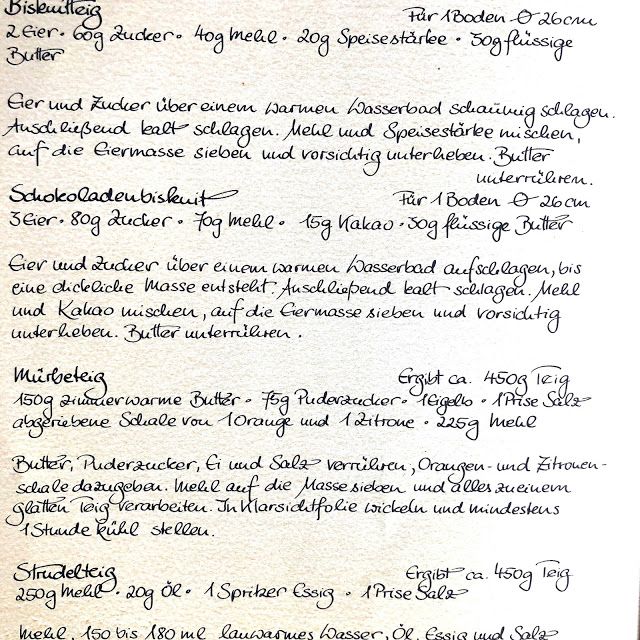 Biskuitteig Für 1 Boden Ø 26cm
2 Eier · 60g Zucker · 40g Mehl · 20g Speisestärke · 30g flüssige
Butter
Eier und Zucker über einem warmen Wasserbad schaumig schlagen.
Anschließend kalt schlagen. Mehl und Speisestärke mischen,
auf die Eiermasse sieben und vorsichtig unterheben. Butter
unterrühren.
Schokoladenbiskuit Für 1 Boden Ø 26cm
3 Eier · 80g Zucker · 70g Mehl · 15g Kakao · 30g flüssige Butter
Eier und Zucker über einem warmen Wasserbad aufschlagen, bis
eine dickliche Masse entsteht. Anschließend kalt schlagen. Mehl
und Kakao mischen, auf die Eiermasse sieben und vorsichtig
unterheben. Butter unterrühren.
Mürbeteig Ergibt ca. 450g Teig
150g zimmerwarme Butter · 75g Puderzucker · 1 Eigelb · 1 Prise Salz
abgeriebene Schale von 1 Orange und 1 Zitrone · 225g Mehl
Butter, Puderzucker, Ei und Salz verrühren, Orangen- und Zitronen-
schale dazugeben. Mehl auf die Masse sieben und alles zu einem
glatten Teig verarbeiten. In Klarsichtfolie wickeln und mindestens
1 Stunde kühl stellen.
Strudelteig Ergibt ca. 450g Teig
250g Mehl · 20g Öl · 1 Spritzer Essig · 1 Prise Salz
Mehl, 150 bis 180 ml lauwarmes Wasser, Öl, Essig und Salz